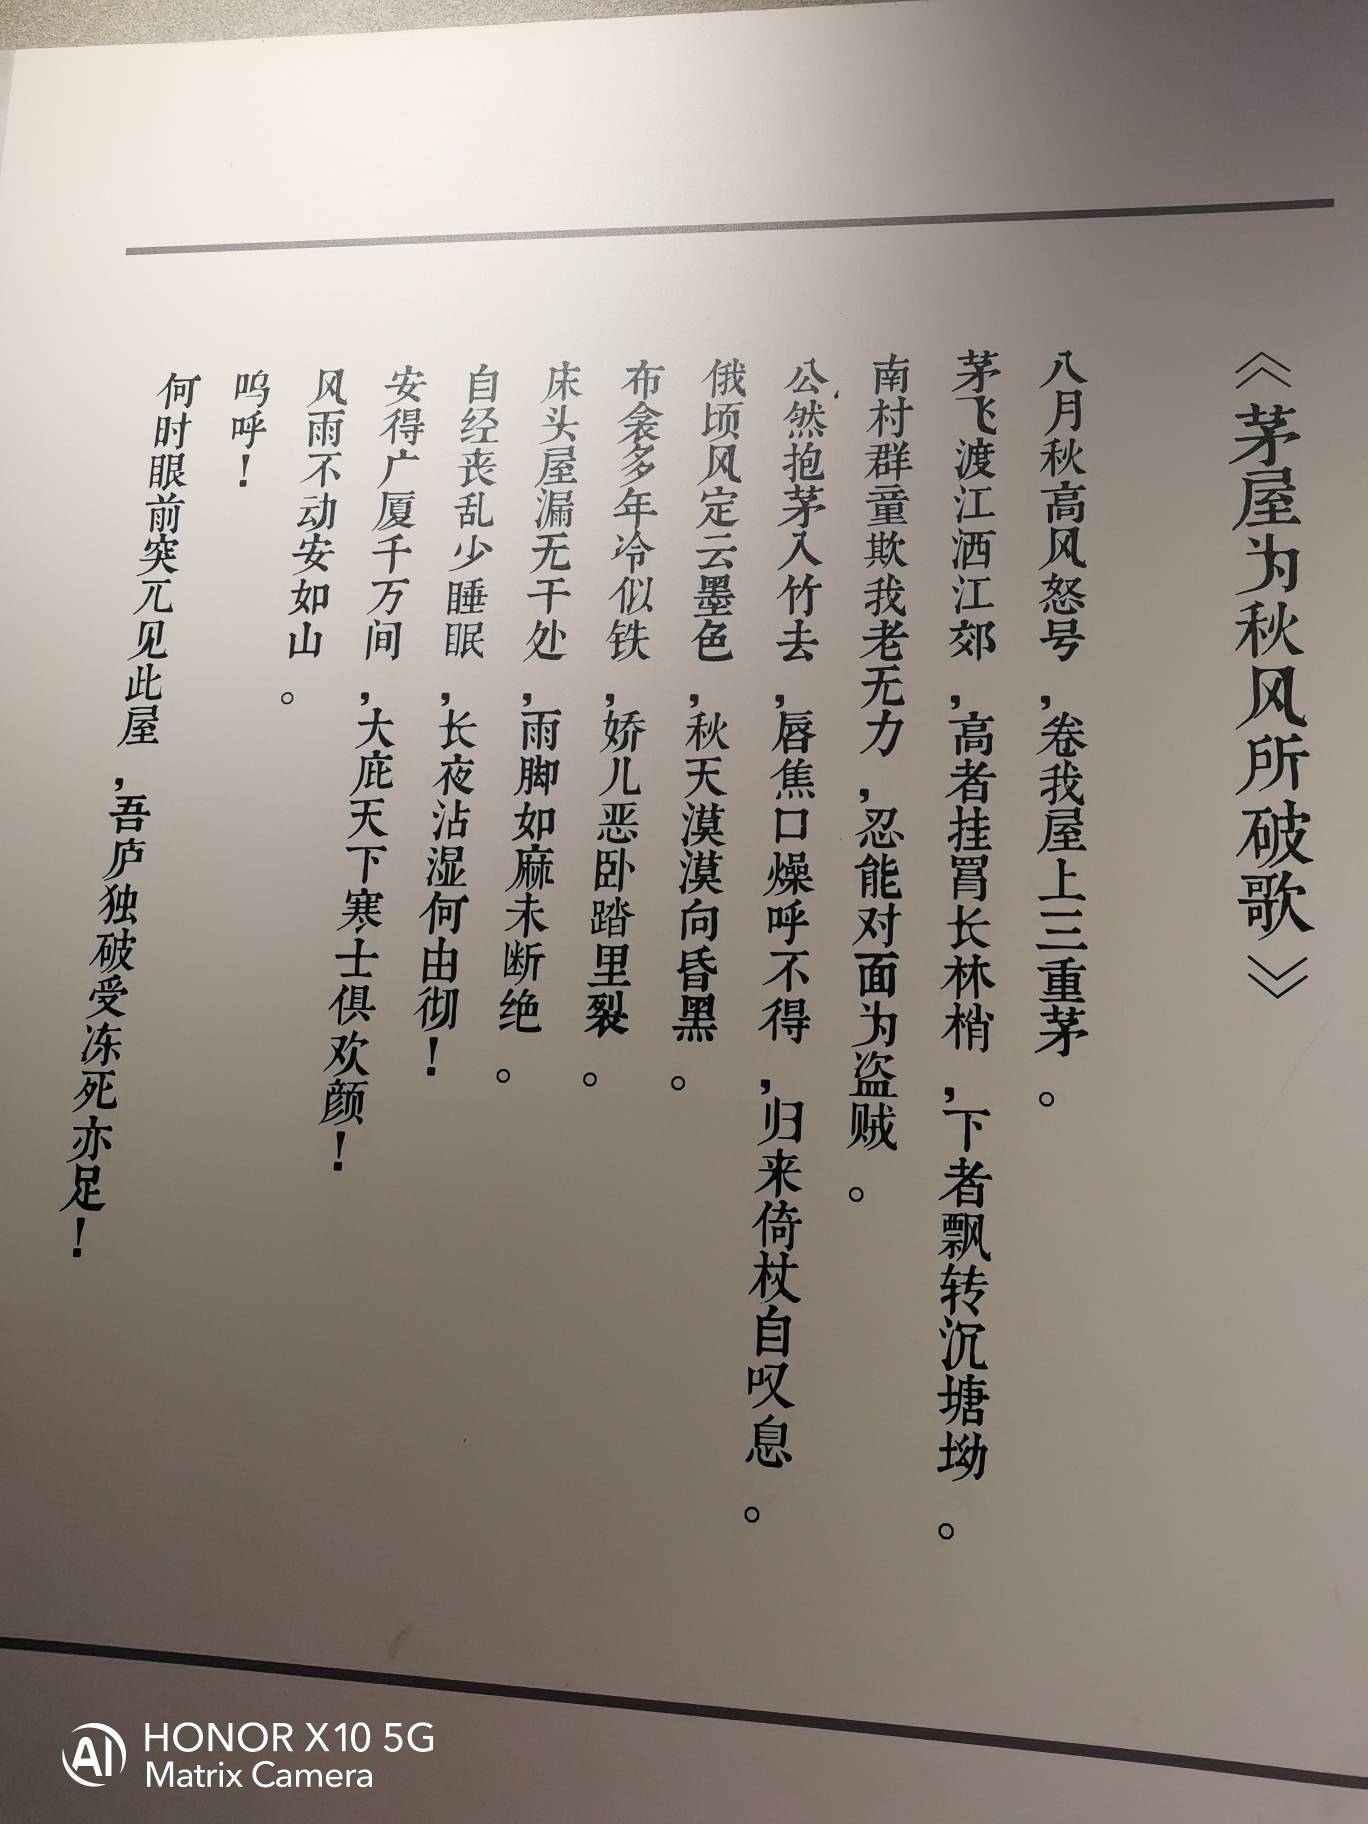 《茅屋为秋风所破歌》
八月秋高风怒号,卷我屋上三重茅。
茅飞渡江洒江郊,高者挂罥长林梢,下者飘转沉塘坳。
南村群童欺我老无力,忍能对面为盗贼。
公然抱茅入竹去,唇焦口燥呼不得,归来倚杖自叹息。
俄顷风定云墨色,秋天漠漠向昏黑。
布衾多年冷似铁,娇儿恶卧踏里裂。
床头屋漏无干处,雨脚如麻未断绝。
自经丧乱少睡眠,长夜沾湿何由彻!
安得广厦千万间,大庇天下寒士俱欢颜!
风雨不动安如山。
呜呼!
何时眼前突兀见此屋,吾庐独破受冻死亦足!
AI HONOR X10 5G
Matrix Camera